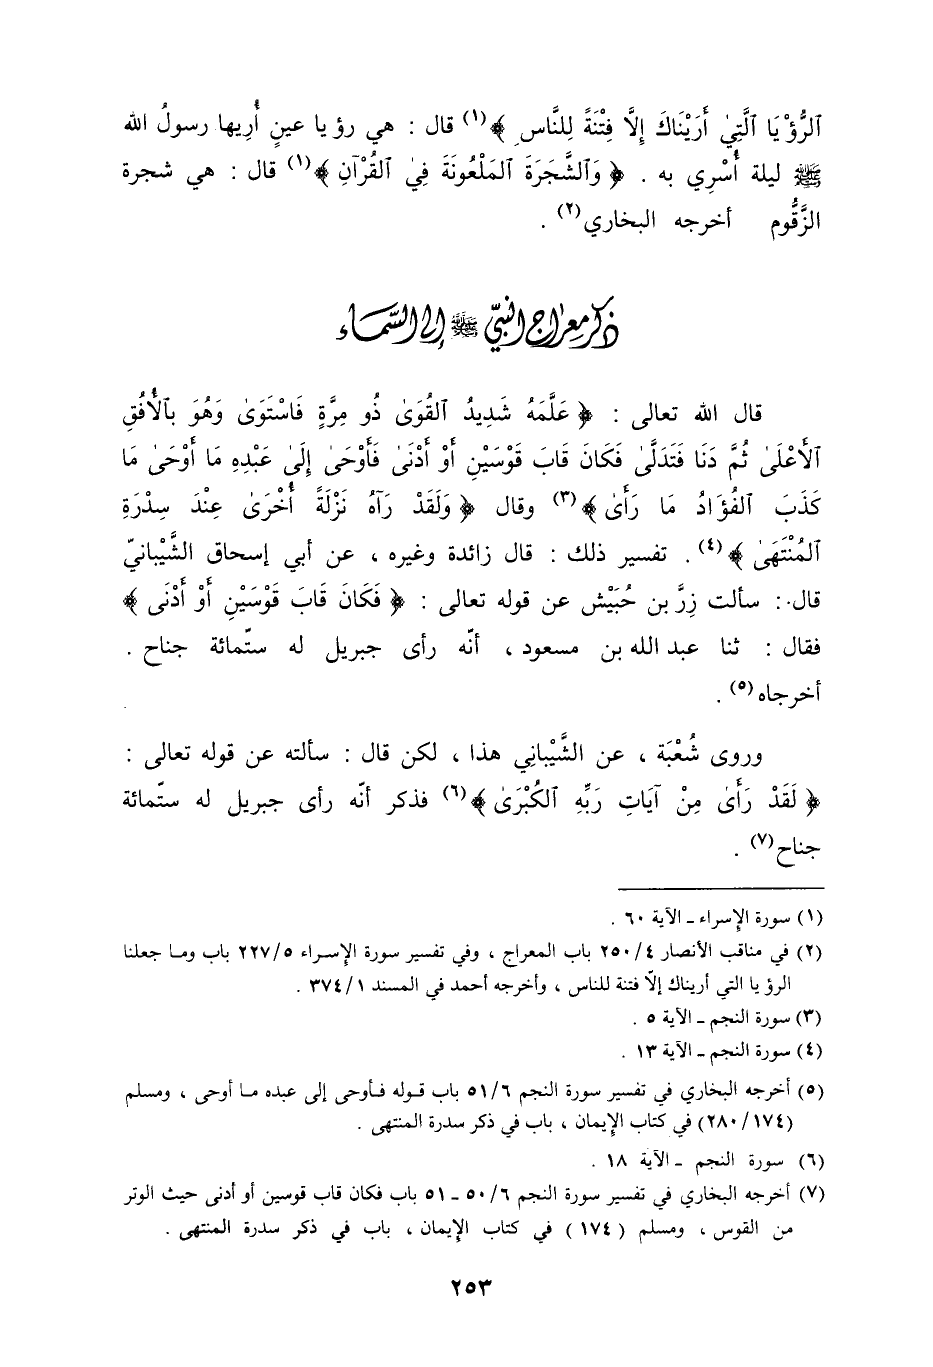 ٱلرُّؤْيَا ٱلَّتِي أَرَيْنَاكَ إِلَّا فِتْنَةً لِلنَّاسِ ﴾(١) قال : هي رؤيا عينٍ أُريها رسولُ الله
ﷺ ليلة أُسْرِي به . ﴿ وَٱلشَّجَرَةَ ٱلمَلْعُونَةَ فِي ٱلقُرْآنِ ﴾(١) قال : هي شجرة
الزَّقُّوم أخرجه البخاري(٢) .
ذكر معراج النبيّ ﷺ إلى السّماء
قال الله تعالى : ﴿ عَلَّمَهُ شَدِيدُ ٱلقُوَىٰ ذُو مِرَّةٍ فَاسْتَوَىٰ وَهُوَ بِٱلأُفُقِ
ٱلأَعْلَىٰ ثُمَّ دَنَا فَتَدَلَّىٰ فَكَانَ قَابَ قَوْسَيْنِ أَوْ أَدْنَىٰ فَأَوْحَىٰ إِلَىٰ عَبْدِهِ مَا أَوْحَىٰ مَا
كَذَبَ ٱلفُؤَادُ مَا رَأَىٰ ﴾(٣) وقال ﴿ وَلَقَدْ رَآهُ نَزْلَةً أُخْرَىٰ عِنْدَ سِدْرَةِ
ٱلمُنْتَهَىٰ ﴾(٤) . تفسير ذلك : قال زائدة وغيره ، عن أبي إسحاق الشَّيْبانيّ
قال : سألت زِرَّ بن حُبَيْش عن قوله تعالى : ﴿ فَكَانَ قَابَ قَوْسَيْنِ أَوْ أَدْنَى ﴾
فقال : ثنا عبد الله بن مسعود ، أنّه رأى جبريل له ستّمائة جناح .
أخرجاه(٥) .
وروى شُعْبَة ، عن الشَّيْبانِي هذا ، لكن قال : سألته عن قوله تعالى :
﴿ لَقَدْ رَأَىٰ مِنْ آيَاتِ رَبِّهِ ٱلكُبْرَىٰ ﴾(٦) فذكر أنّه رأى جبريل له ستّمائة
جناح(٧) .
(١) سورة الإسراء ـ الآية ٦٠ .
(٢) في مناقب الأنصار ٢٥٠/٤ باب المعراج ، وفي تفسير سورة الإسراء ٢٢٧/٥ باب وما جعلنا
الرؤيا التي أريناك إلاّ فتنة للناس ، وأخرجه أحمد في المسند ٣٧٤/١ .
(٣) سورة النجم ـ الآية ٥ .
(٤) سورة النجم ـ الآية ١٣ .
(٥) أخرجه البخاري في تفسير سورة النجم ٥١/٦ باب قوله فأوحى إلى عبده ما أوحى ، ومسلم
(٢٨٠/١٧٤) في كتاب الإيمان ، باب في ذكر سدرة المنتهى .
(٦) سورة النجم ـ الآية ١٨ .
(٧) أخرجه البخاري في تفسير سورة النجم ٥٠/٦ ـ ٥١ باب فكان قاب قوسين أو أدنى حيث الوتر
من القوس ، ومسلم (١٧٤) في كتاب الإيمان ، باب في ذكر سدرة المنتهى .
٢٥٣